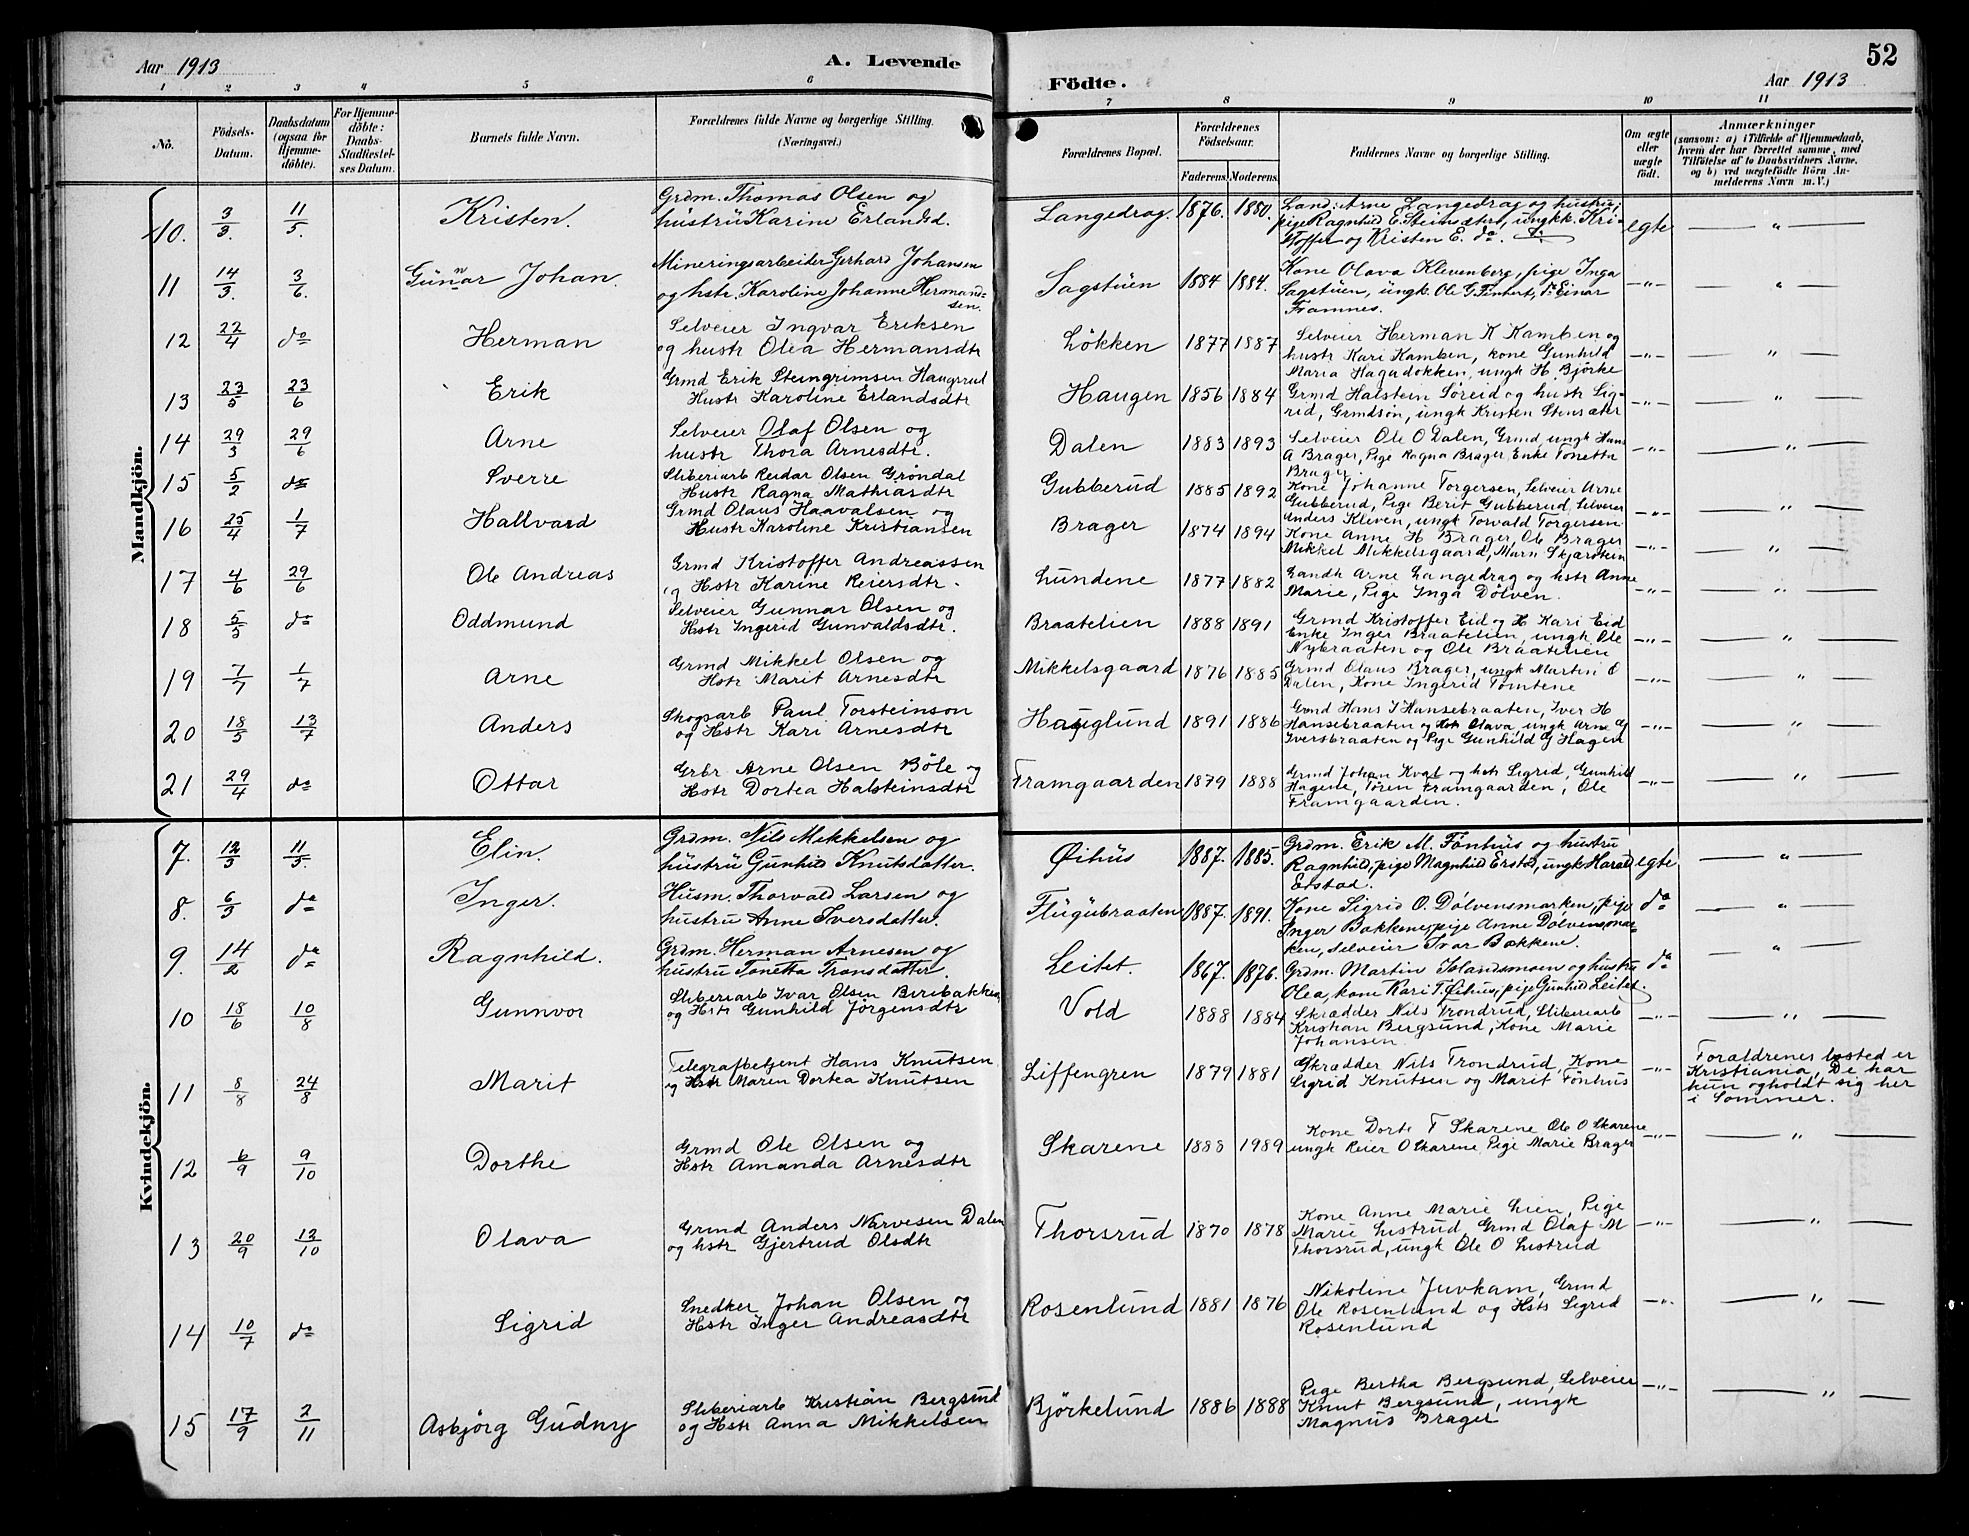 Aar 1913
A. Levende
Födte.
Aar 1913
52
1 2 3 4 5 6 7 8 9 10 11
No.
Födsels-
Datum.
Daabsdatum
(ogsaa for
Hjemme-
döbte).
For Hjemme-
döbte:
Daabs-
Stadfæstel-
ses Datum.
Barnets fulde Navn.
Forældrenes fulde Navne og borgerlige Stilling.
(Næringsvei.)
Forældrenes Bopæl.
Forældrenes
Födselsaar.
Faderens.
Moderens.
Faddernes Navne og borgerlige Stilling.
Om ægte
eller
uægte
födt.
Anmærkninger
(saasom: a) i Tilfælde af Hjemmedaab,
hvem der har forrettet samme, med
Tilföielse af to Daabsvidners Navne,
og b) ved uægtefödte Börn An-
melderens Navn m. V.)
Mandkjön.
10. 3/3. 11/5. Kristen.
Grdm. Thomas Olsen og
hustru Karine Erlandsd.
Langedrag. 1876. 1880.
Land: Arne Langedrag og hustru;
pige Ragnhild E. Steinsæter, ungkk. Kri-
stoffer og Kristen E. do.
egte — " —
11 14/3. 3/6. Gunnar Johan.
Mineringsarbeider Gerhard Johansen
og hstr. Karoline Johanne Hermand-
sen.
Sagstuen 1884 1884.
Kone Olava Klevenberg, pige Inga
Sagstuen, ungk. Ole G Finhert, do Einar
Framnes.
—"— — " —
12 22/4 do Herman
Selveier Ingvar Eriksen
og hustr Olea Hermansdtr
Lökken 1877 1887
Selveier Herman K Kamben og
hustr Kari Kamben, kone Gunhild
Maria Hagadokken, ungk H. Björke
—"— — " —
13 23/5 23/6 Erik
Grmd Erik Steingrimsen Haugerud
Hustr Karoline Erlandsdtr
Haugen 1856 1884
Grmd Halstein Søreid og hustr Sig-
rid, Grmdsøn, ungk Kristen Stensæter
—"— — " —
14 29/3 29/6 Arne
Selveier Olaf Olsen og
hustr Thora Arnesdtr.
Dalen 1883 1893
Selveier Ole O Dalen, Grmd ungk Hans
A Brager, Pige Ragna Brager Enke Tonetta
Brager
—"— — " —
15 5/2 do Sverre
Sliberiarb Reidar Olsen Grøndal
Hustr Ragna Mathiasdtr
Gubberud 1885 1892
Kone Johanne Torgersen, Selveier Arne
Gubberud, Pige Berit Gubberud, Selveier
Anders Kleven, ungk Torvald Torgersen
—"— — " —
16 25/4 1/7 Hallvard
Grmd Olaus Haavalsen og
Hustr Karoline Kristiansen
Brager 1874 1894
Kone Anne H Brager, Ole Brager
Mikkel Mikkelsgaard, Marn Skjærstein
—"— — " —
17 4/6 29/6 Ole Andreas
Grmd Kristoffer Andreassen
og Hstr Karine Reiersdtr.
Lundene 1877 1882
Landh Arne Langedrag og hstr Anne
Marie, Pige Inga Dølven.
—"— — " —
18 5/5 do Oddmund
Selveier Gunnar Olsen og
Hstr Ingerid Gunvaldsdtr.
Braatelien 1888 1891
Grmd Kristoffer Eid og H Kari Eid
Enke Inger Braatelien, ungk Ole
Nybraaten og Ole Braatelien
—"— — " —
19 7/7 1/7 Arne
Grmd Mikkel Olsen og
Hstr Marit Arnesdtr
Mikkelsgaard 1876 1885
Grmd Olaus Brager, ungk Martin O
Dalen, Kone Ingerid Tomtene
—"— — " —
20 18/5 13/7 Anders
Skogsarb Paul Torsteinson
og Hstr Kari Arnesdtr
Hauglund 1891 1886
Grmd Hans I Hansebraaten, Iver H
Hansebraaten og Hstr Olava, ungk Arne G
Iversbraaten og Pige Gunhild G Hagen
—"— — " —
21 29/4 do Ottar
Grbr Arne Olsen Böle og
Hstr Dortea Halsteinsdtr
Framgaarden 1879 1888
Grmd Johan Kval og hstr Sigrid, Gunhild
Hagene, Toren Framgaarden, Ole
Framgaarden.
—"— — " —
Kvindekjön.
7. 12/3 11/5 Elin.
Grdm. Nils Mikkelsen og
hustru Gunhild Knutsdatter.
Øihus 1887. 1885.
Grdm. Erik M. Fønhus og hustru
Ragnhild, pige Magnhild Erstad, ungk Harald
Erstad.
egte — " —
8. 6/3 do Inger.
Husm. Thorvald Larsen og
hustru Anne Iversdatter.
Flugubraaten 1887. 1891.
Kone Sigrid O. Dølvensmarken, pige
Inger Bakkene, pige Anne Dølvensmar-
ken, selveier Ivar Bakkene.
do — " —
9. 14/2 do Ragnhild.
Grdm. Herman Arnesen og
hustru Tonetta Tronsdatter.
Leitet. 1867. 1876.
Grdm. Martin Islandsmoen og hustru
Olea, kone Kari T. Øihus, pige Gunhild Leitet.
do " —
10 18/6 10/8 Gunnvor
Sliberiarb Ivar Olsen Biribakken
og Hstr Gunhild Jørgensdtr
Vold 1888 1884
Skrædder Nils Trondrud, Sliberiarb
Kristian Bergsund, Kone Marie
Johansen
—"— — " —
11 8/8 24/8 Marit
Telegrafbetjent Hans Knutsen
og Hstr Maren Dortea Knutsen
Liffengren 1879 1881
Skrædder Nils Trondrud, Kone
Sigrid Knutsen og Marit Fönhus
—"—
Forældrenes bosted er
Kristiania, De har
kun ogholdt sig her
i Sommer.
12 6/9 9/10 Dorthe
Grmd Ole Olsen og
Hstr Amanda Arnesdtr
Skarene 1888 1989
Kone Dorte T Skarene Ole O Skarene
ungk Reier O Skarene Pige Marie Brager
—"— — " —
13 20/9 12/10 Olava
Grmd Anders Narvesen Dalen
og hstr Gjertrud Olsdtr
Thorsrud 1870 1878
Kone Anne Marie Lien, Pige
Marie Listrud Grmd Olaf M
Thorsrud, ungk Ole O Listrud
—"— — " —
14 10/7 do Sigrid
Snedker Johan Olsen og
Hstr Inger Andreasdtr
Rosenlund 1881 1876
Nikoline Juvkam, Grmd
Ole Rosenlund og Hstr Sigrid
Rosenlund
—"— — " —
15 17/9 2/11 Asbjörg Gudny
Sliberiarb Kristian Bergsund
og Hstr Anna Mikkelsen
Björkelund 1886 1888
Pige Bertha Bergsund, Selveier
Knut Bergsund, ungk
Magnus Brager
—"— — " —